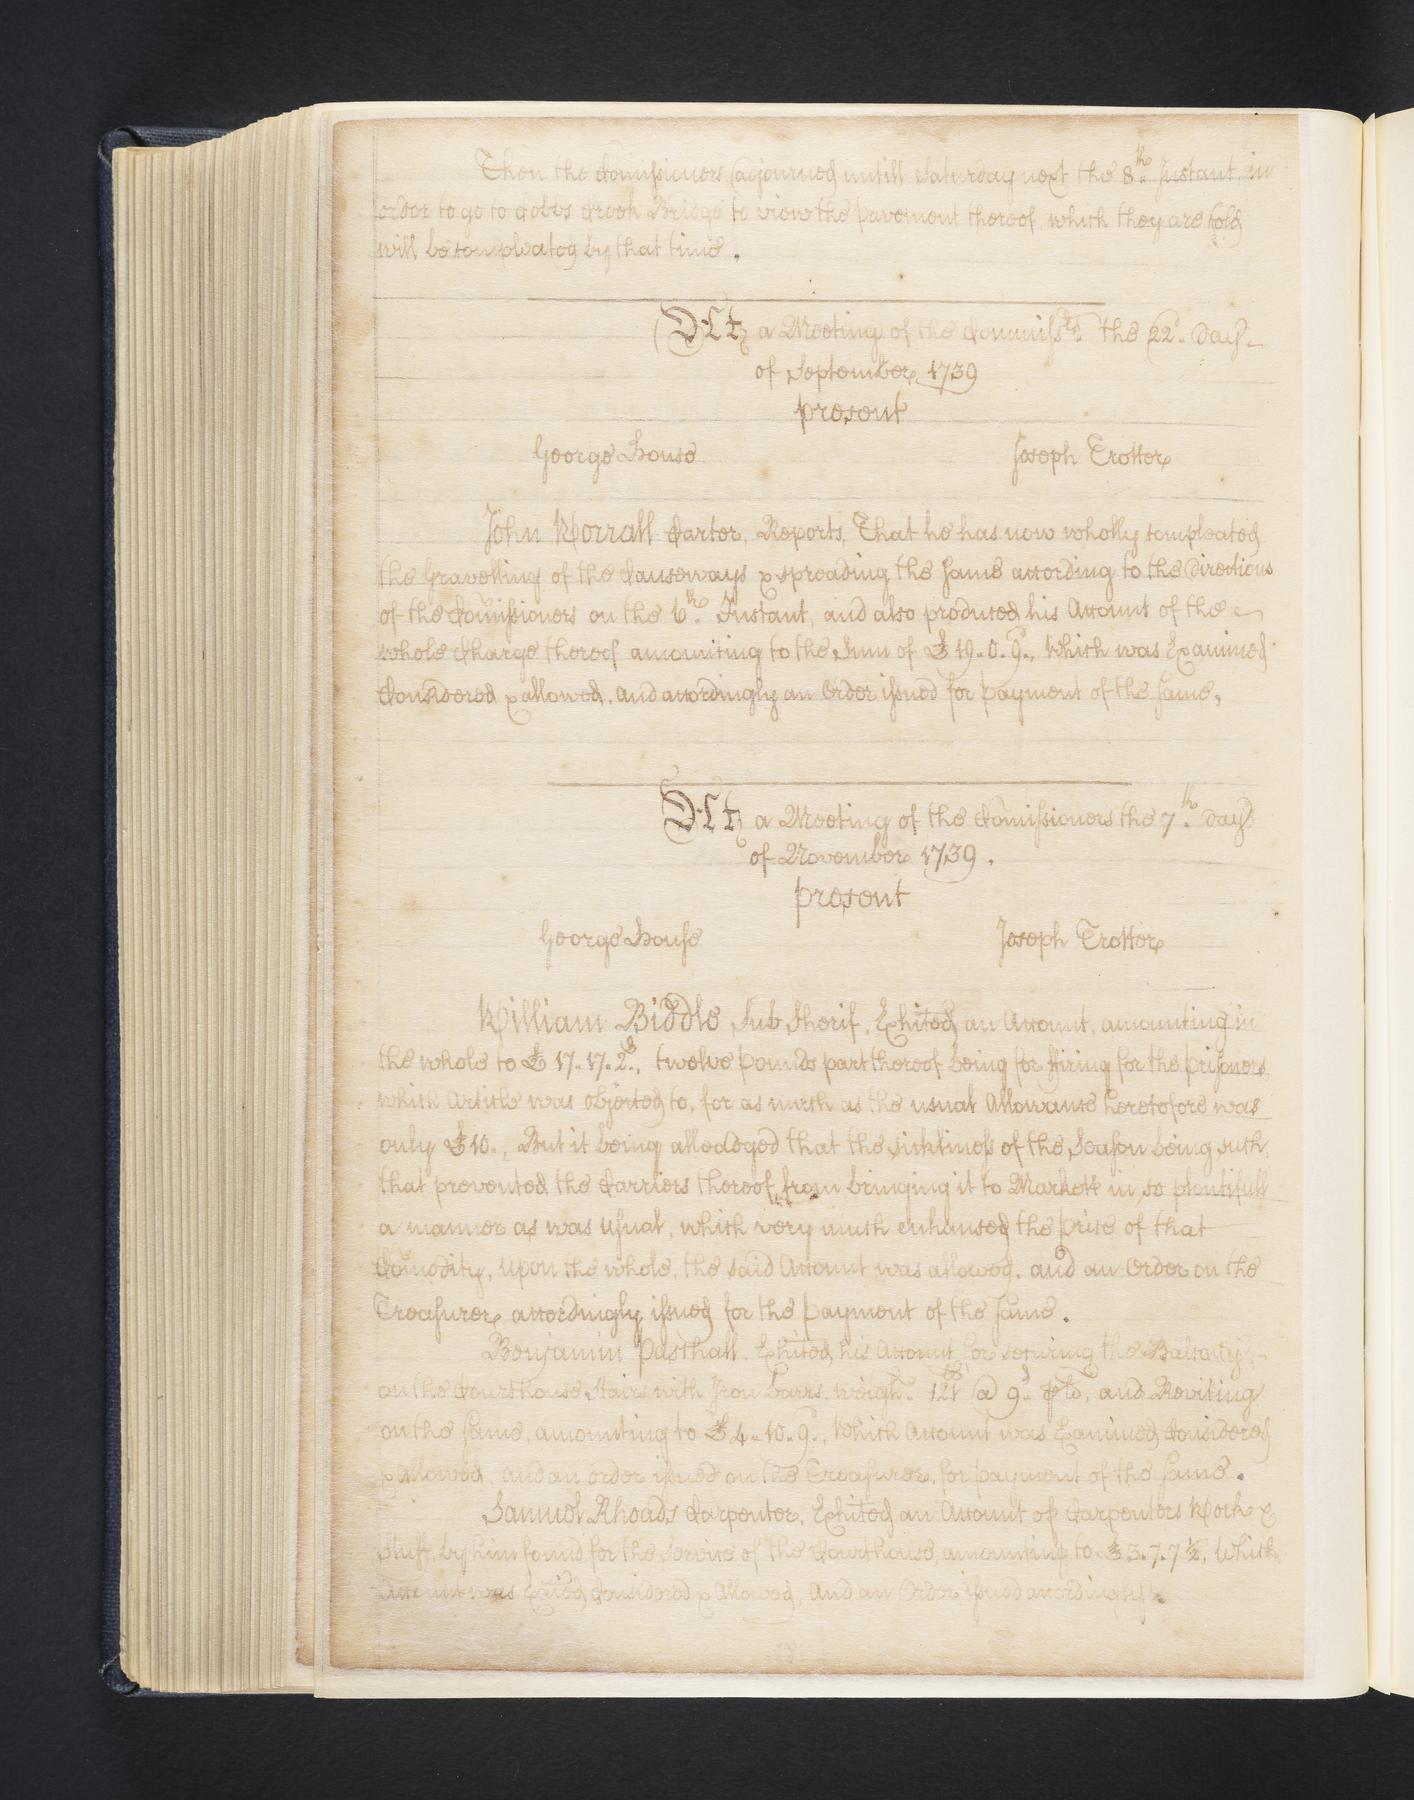 Then the Comissioners adjourned untill Saturday next the 8th Instant, in
order to go to Cobbs Creek Bridge to view the pavement thereof, which they are told
will be compleated by that time.
At a Meeting of the Commissrs the 22d day
of September 1739
present
George House Joseph Trotter
John Worrall Carter, Reports, That he has now wholly compleated
the Gravelling of the Causeways & spreading the same according to the directions
of the Comissioners on the 6th Instant, and also produced his Account of the
whole Charge thereof amounting to the Sum of £19..0..9d, Which was Examined
Considered & allowed, and accordingly an Order issued for payment of the same,
At a Meeting of the Comissioners the 7th day
of November 1739.
present
George House Joseph Trotter
William Biddle Sub Sherif, Exhited an Account, amounting in
the whole to £17..17..2d, twelve pounds part thereof being for Firing for the prisoners,
which Article was objected to, for as much as the usual Allowance heretofore was
only £10.., But it being alleadged that the sickliness of the Season being such,
that prevented the Carriers thereof from bringing it to Markett in so plentifull
a manner as was usual, which very much enhansed the price of that
Comodity, upon the whole, the said Account was allowed, and an Order on the
Treasurer accordingly issued for the payment of the same.
Benjamin Pasthall, Exhited his Account for securing the Balcony
on the Courthouse Stairs with Iron barrs, weighg 121 lb @ 9d and Reviting
on the same, amounting to £4..10..9d, Which Account was Examined Considered
& Allowed, and an order issued on the Treasurer, for payment of the same.
Samuel Rhoads Carpenter, Exhited an Account of Carpenters Work &
stuff, by him found for the Service of the Courthouse, amounting to £3.7.7½, Which
Account was Considered & Allowed, And an Order issued accordingly.